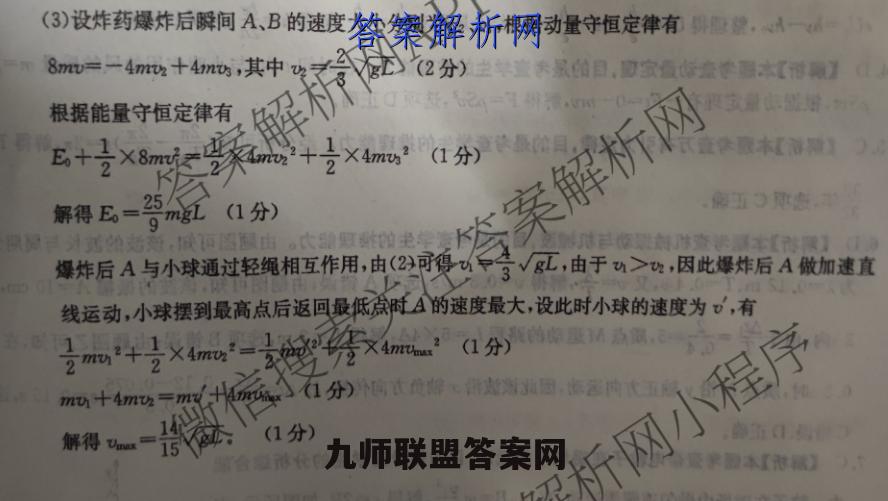 (3)设炸药爆炸后瞬间 A、B 的速度大小分别为
答案解析网
根据动量守恒定律有
8mv=-4mv₂+4mv₃,其中 v₂=2/3√gL (2分)
根据能量守恒定律有
E₀+1/2×8mv²=1/2×4mv₂²+1/2×4mv₃² (1分)
解得 E₀=25/9mgL (1分)
爆炸后 A 与小球通过轻绳相互作用,由(2)可得 v₁=4/3√gL,由于 v₁>v₂,因此爆炸后 A 做加速直
线运动,小球摆到最高点后返回最低点时 A 的速度最大,设此时小球的速度为 v′,有
1/2mv₁²+1/2×4mv₂²=1/2mv′²+1/2×4mvmax² (1分)
mv₁+4mv₂=mv′+4mvmax (1分)
解得 vmax=14/15√gL。 (1分)
九师联盟答案网
微信搜索关注答案解析网
答案解析网
解析网小程序